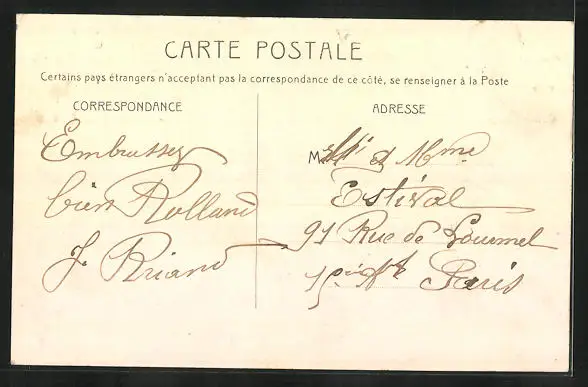 CARTE POSTALE
Certains pays étrangers n'acceptant pas la correspondance de ce côté, se renseigner à la Poste
CORRESPONDANCE
ADRESSE
Embrassez
bien Rolland
J. Briand
M et Mme
Estival
91 Rue de Lourmel
Paris